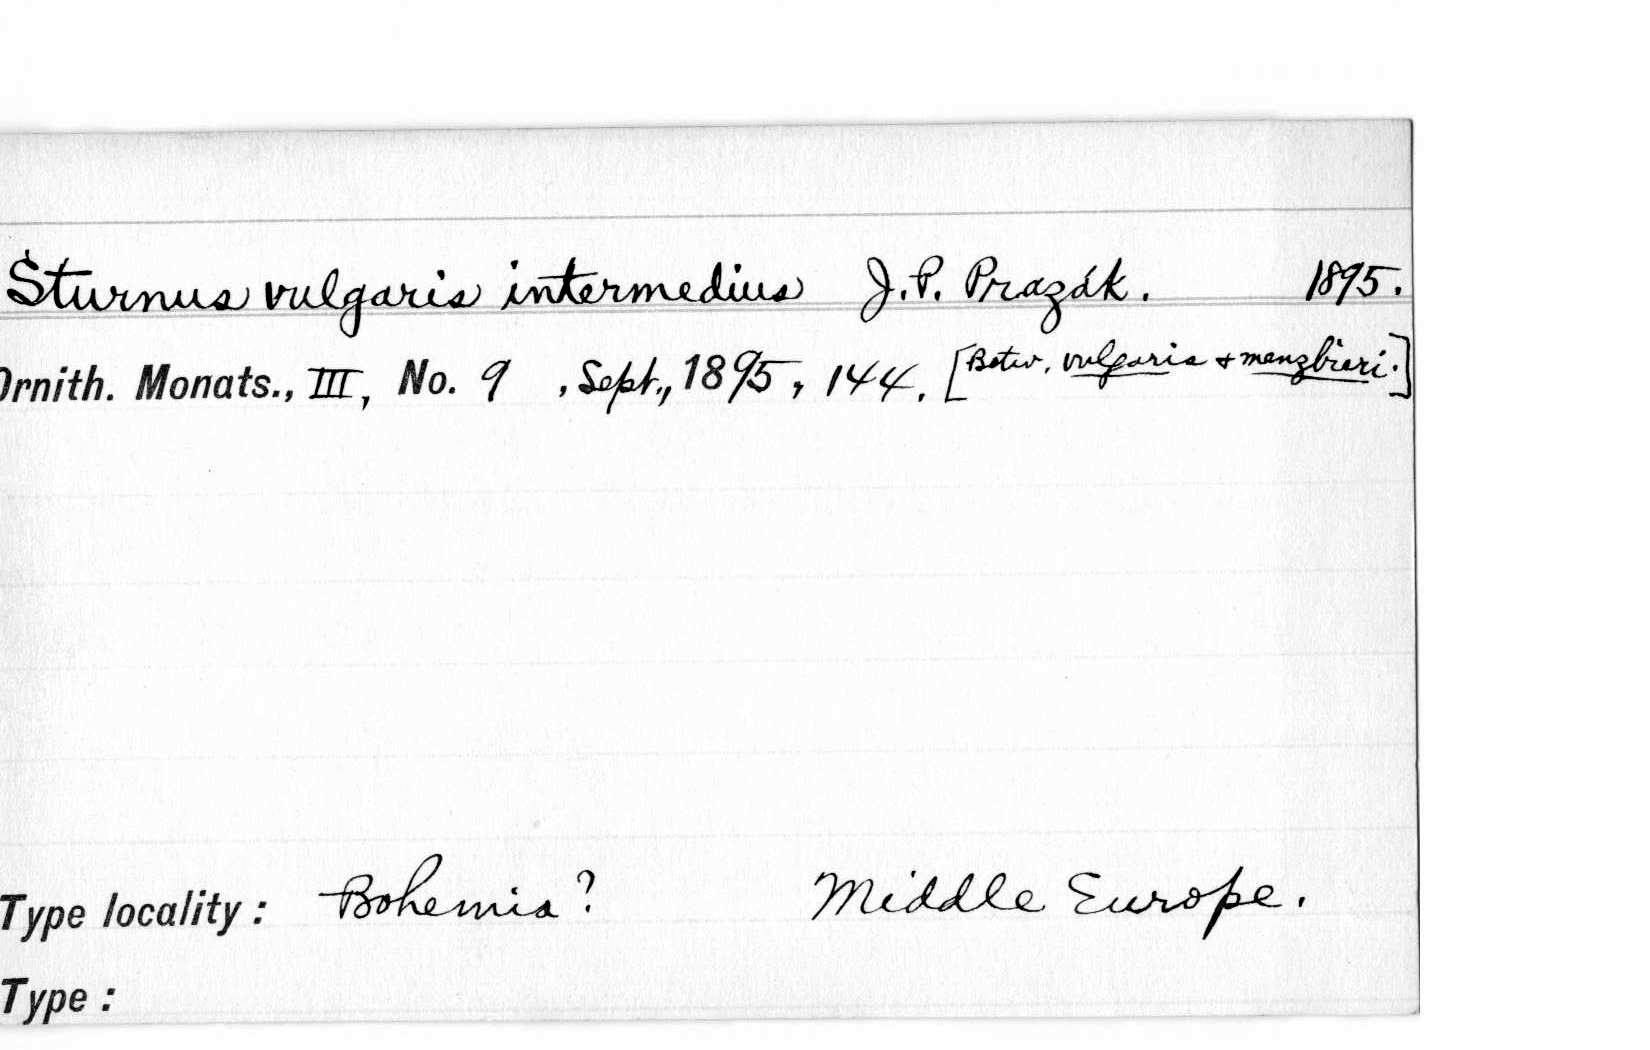 Sturnus vulgaris intermedius J. P. Prazák. 1895.
Ornith. Monats., III, No. 9 , Sept., 1895, 144. [Betw. vulgaris + menzbieri.]
Type locality: Bohemia? Middle Europe.
Type: